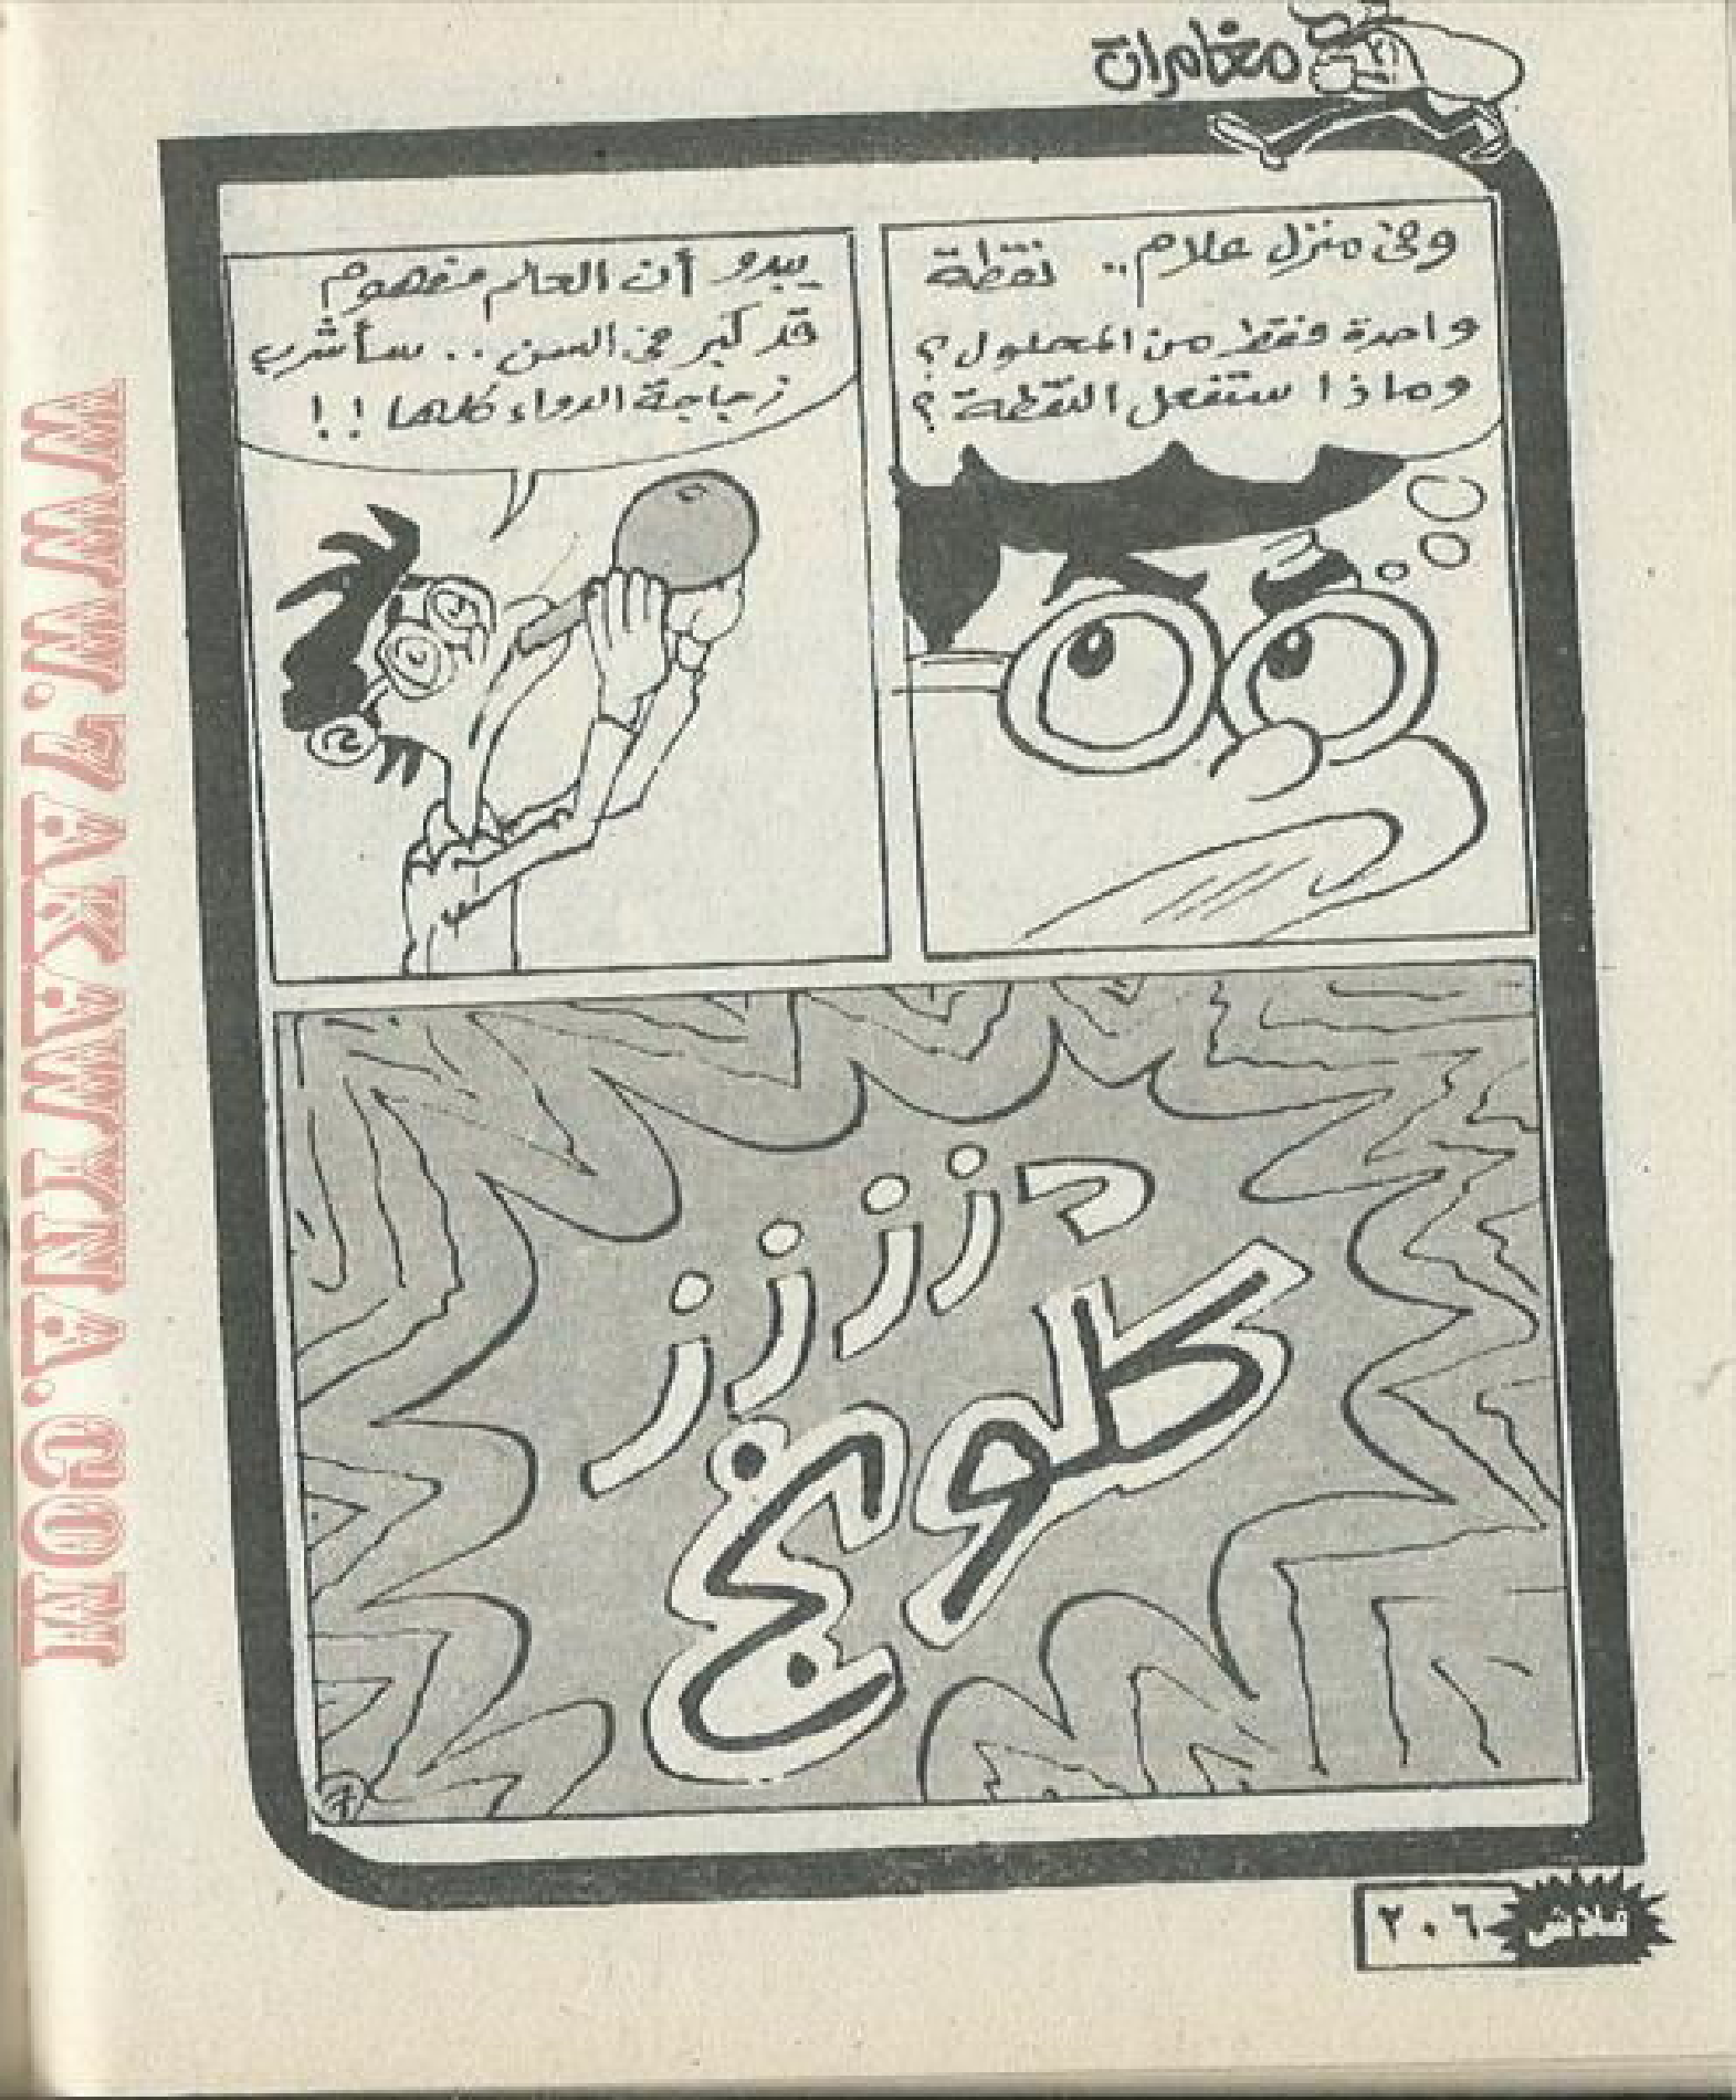 مغامرات
وفى منزل علام.. نقطة
واحدة فقط من المحلول؟
وماذا ستفعل النقطة؟
يبدو أن العالم مفهوم
قد كبر فى السن .. سأشرب
زجاجة الدواء كلها !!
د ز ز ز ز
كلوخ
٢٠٦
فلاش
WWW.7AKAWINA.COM